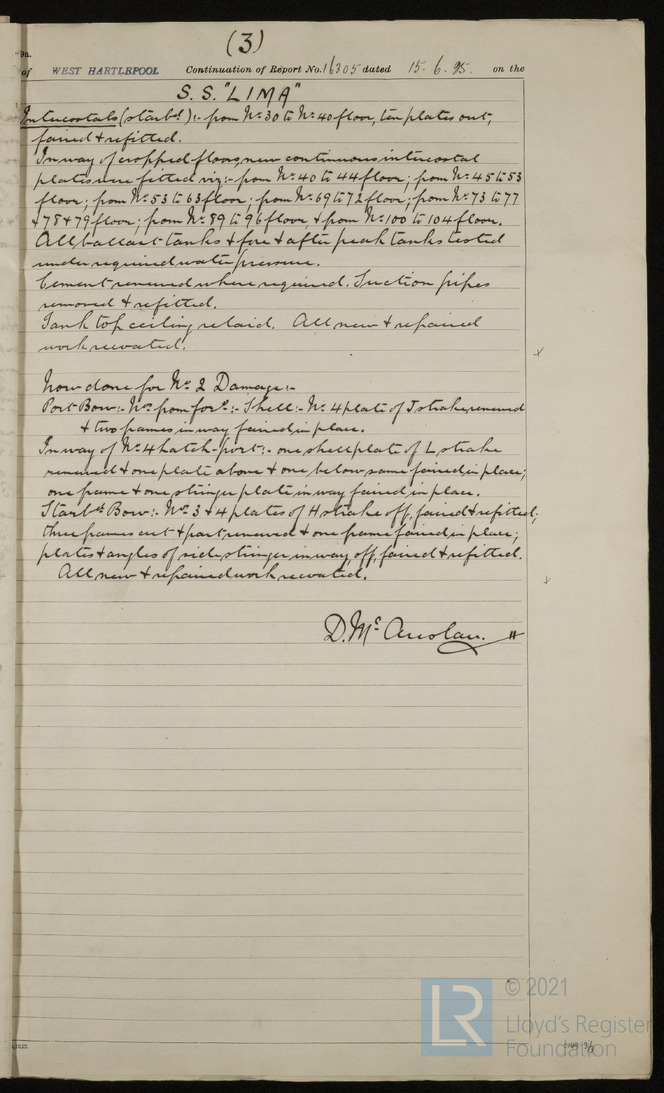 (3)
9a.
of WEST HARTLEPOOL Continuation of Report No. 16305 dated 15. 6. 95. on the
S. S. "LIMA"
Intercostals (starbd):- from No 30 to No 40 floor, ten plates out,
faired & refitted.
In way of cropped floors, new continuous intercostal
plates were fitted viz:- from No 40 to 44 floor; from No 45 to 53
floor; from No 53 to 63 floor; from No 69 to 72 floor; from No 73 to 77
& 78 & 79 floor; from No 89 to 96 floor, & from No 100 to 104 floor.
All ballast tanks & fore & after peak tanks tested
under required water pressure.
Cement renewed where required. Suction pipes
removed & refitted.
Tank top ceiling relaid. All new & repaired
work recoated.
Now done for No 2 Damage:-
Port Bow:- Nos from ford:- Shell:- No 4 plate of J strake, renewed
& two frames in way faired in place.
In way of No 4 hatch-port:- one shell plate of L strake
renewed & one plate above & one below same faired in place;
one frame & one stringer plate in way faired in place.
Starbd Bow:- Nos 3 & 4 plates of H strake off, faired & refitted;
three frames cut & part renewed & one frame faired in place;
plates & angles of side stringer in way, off, faired & refitted.
All new & repaired work recoated.
D. Mc
© 2021
LR
Lloyd's Register
Foundation